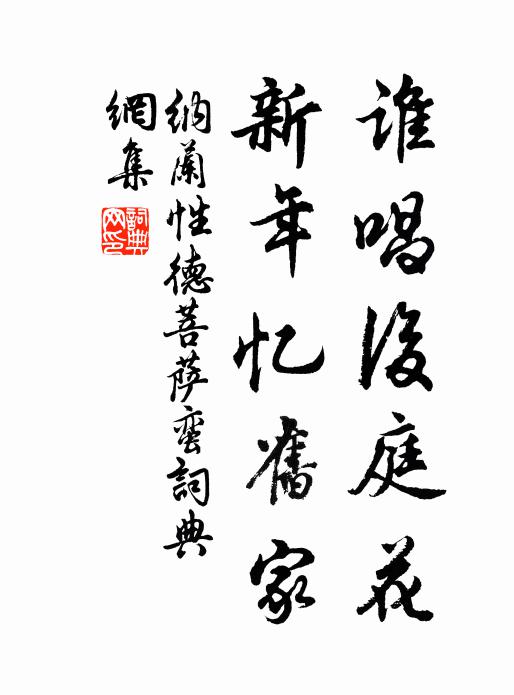 誰唱後庭花
新年忆舊家
納蘭性德菩萨蛮詞典
網集
詞典
网印